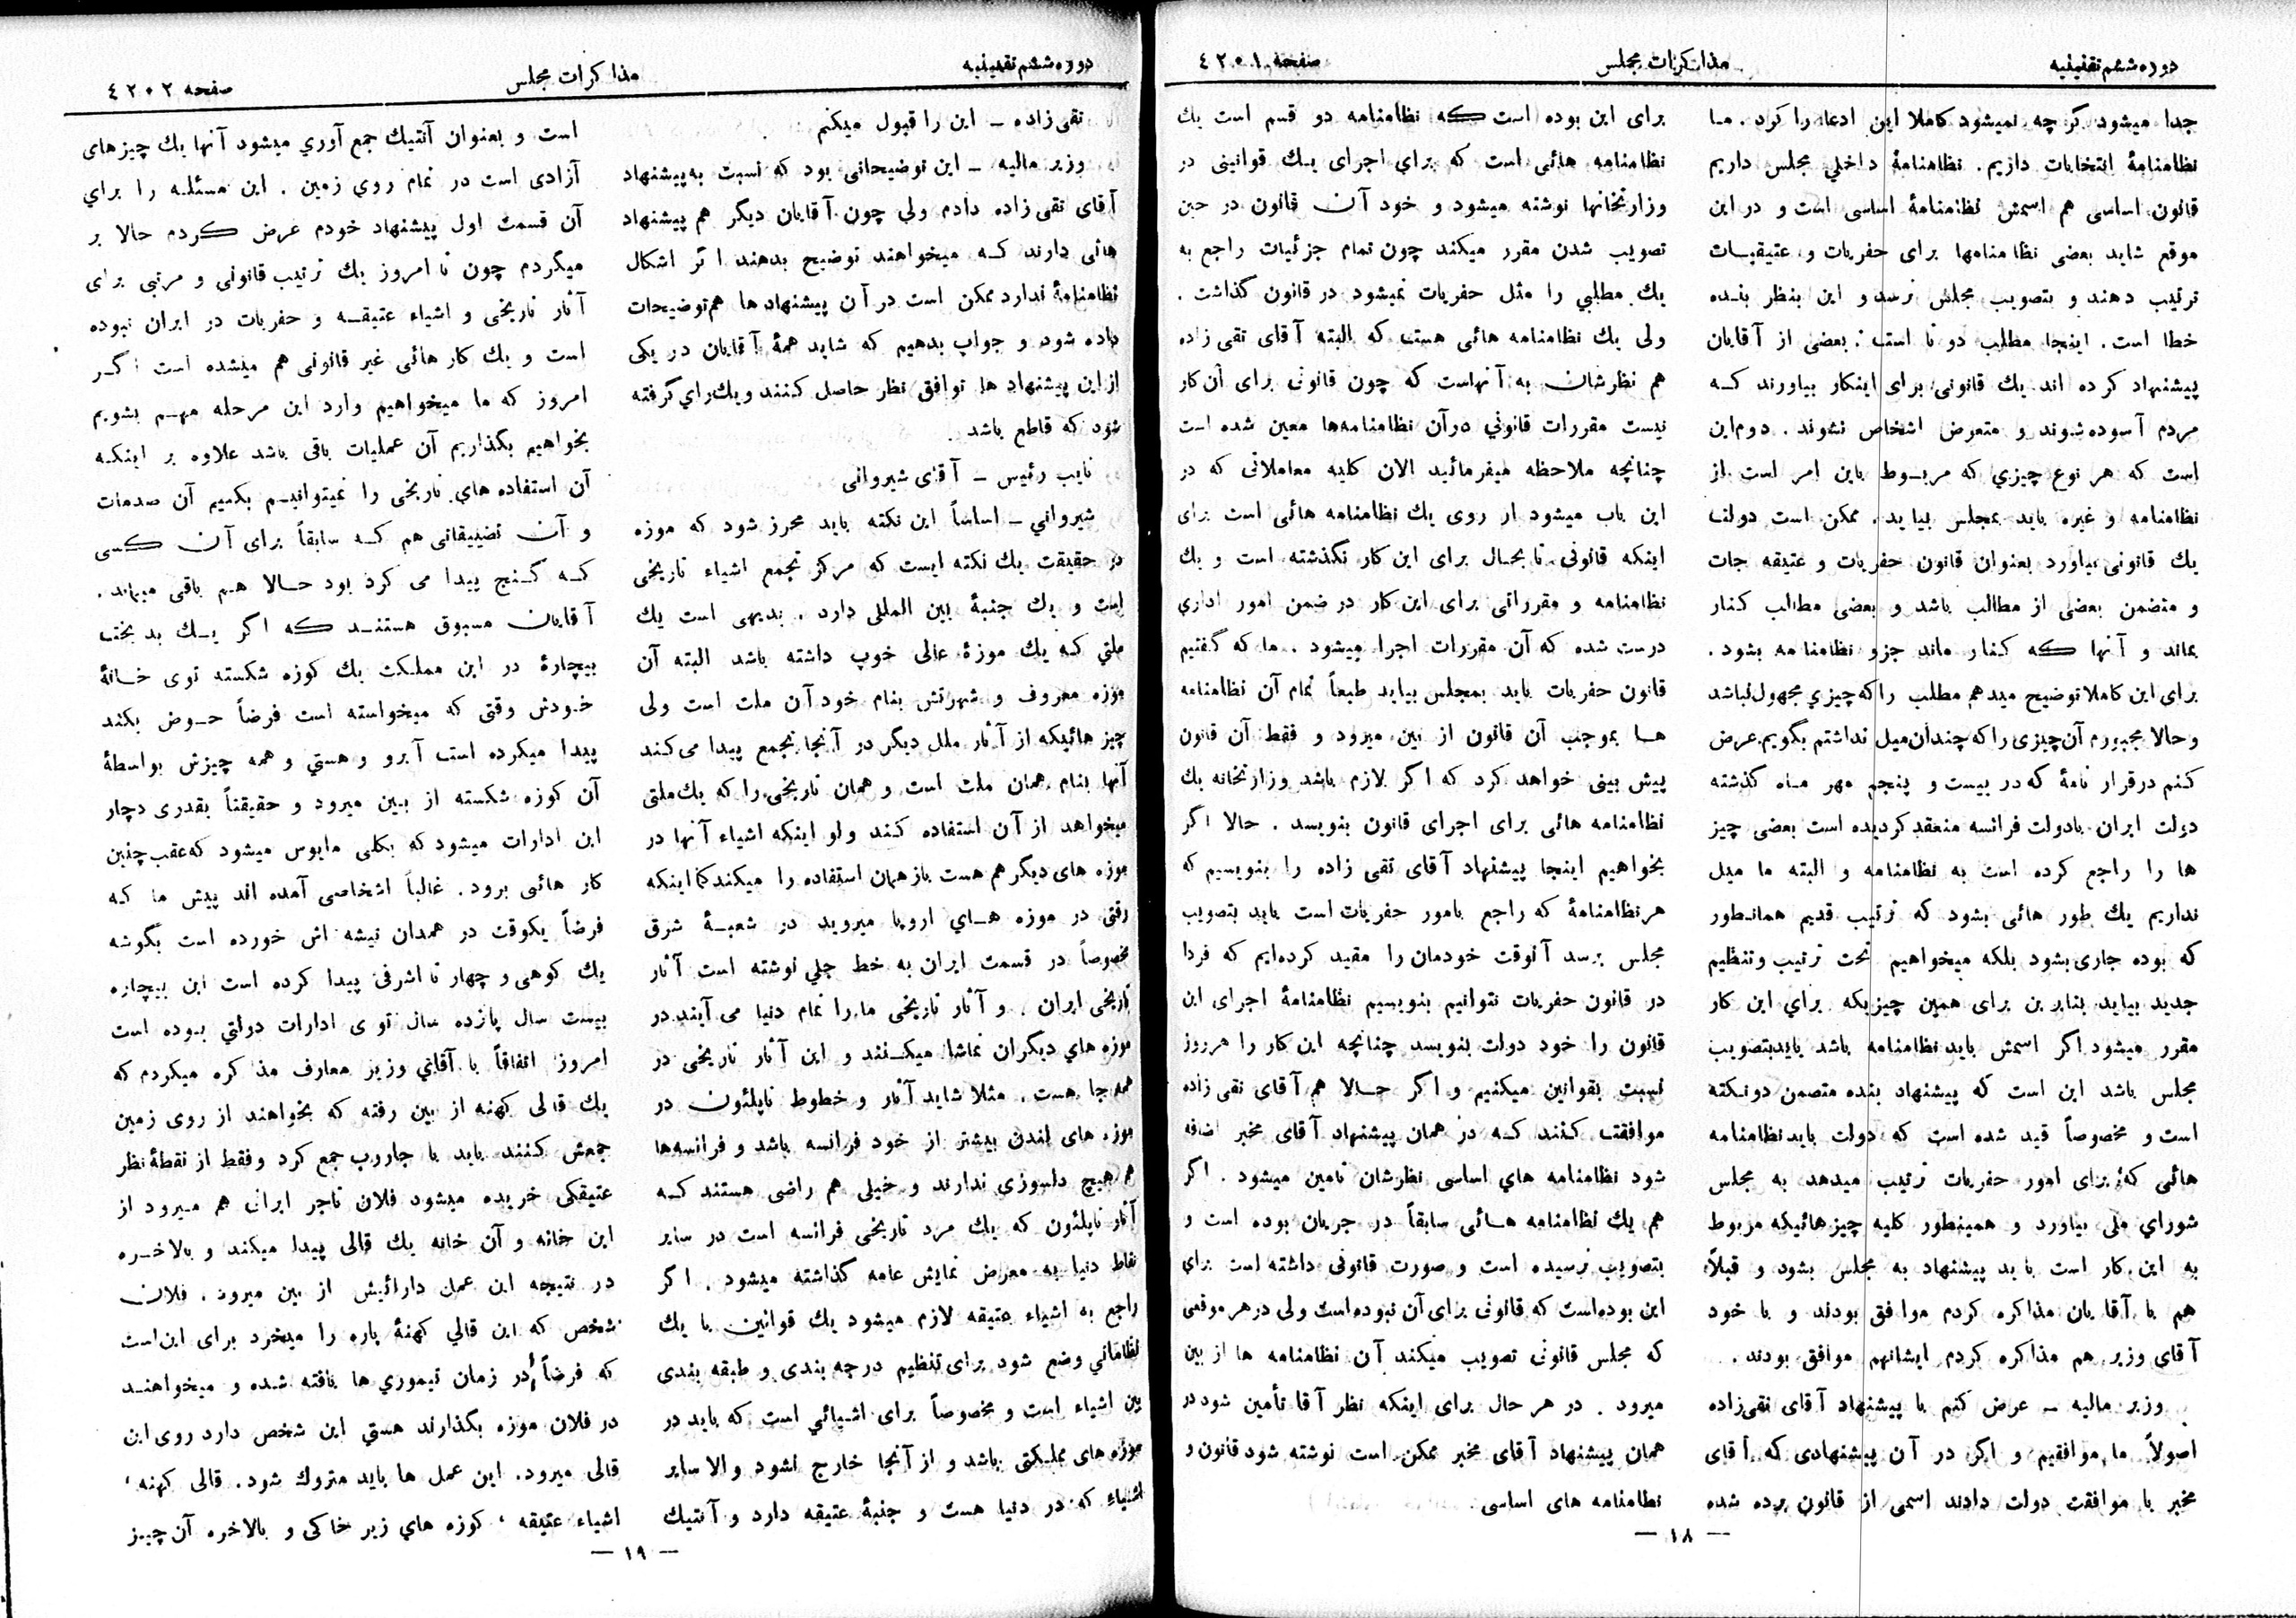 دوره ششم تقنینیه
مذاکرات مجلس
صفحه ٤٢٠١
جدا میشود گرچه نمیشود کاملا این ادعا را کرد . ما
نظامنامهٔ انتخابات داریم . نظامنامهٔ داخلی مجلس داریم
قانون اساسی هم اسمش نظامنامهٔ اساسی است و در این
موقع شاید بعضی نظامنامها برای حفریات و عتیقیات
ترتیب دهند و بتصویب مجلس نرسد و این بنظر بنده
خطا است . اینجا مطلب دو تا است : بعضی از آقایان
پیشنهاد کرده اند یك قانونی برای اینکار بیاورند که
مردم آسوده شوند و متعرض اشخاص نشوند . دوم این
است که هر نوع چیزی که مربوط باین امر است از
نظامنامه و غیره باید بمجلس بیاید . ممکن است دولت
یك قانونی بیاورد بعنوان قانون حفریات و عتیقه جات
و متضمن بعضی از مطالب باشد و بعضی مطالب کنار
بماند و آنها که کنار ماند جزو نظامنامه بشود .
برای این کاملا توضیح میدهم مطلب را که چیزی مجهول نباشد
و حالا مجبورم آن چیزی را که چندان میل نداشتم بگویم عرض
کنم در قرار نامهٔ که در بیست و پنجم مهر ماه گذشته
دولت ایران با دولت فرانسه منعقد گردیده است بعضی چیز
ها را راجع کرده است به نظامنامه و البته ما میل
نداریم یك طور هائی بشود که ترتیب قدیم همانطور
که بوده جاری بشود بلکه میخواهیم تحت ترتیب و تنظیم
جدید بیاید بنابرین برای همین چیزیکه برای این کار
مقرر میشود اگر اسمش باید نظامنامه باشد باید بتصویب
مجلس باشد این است که پیشنهاد بنده متضمن دو نکته
است و مخصوصاً قید شده است که دولت باید نظامنامه
هائی که برای امور حفریات ترتیب میدهد به مجلس
شورای ملی بیاورد و همینطور کلیه چیزهائیکه مربوط
به این کار است باید پیشنهاد به مجلس بشود و قبلاً
هم با آقایان مذاکره کردم موافق بودند و با خود
آقای وزیر هم مذاکره کردم ایشانهم موافق بودند .
وزیر مالیه ـ عرض کنم با پیشنهاد آقای تقی‌زاده
اصولاً ما موافقیم و اگر در آن پیشنهادی که آقای
مخبر با موافقت دولت دادند اسمی از قانون برده شده
برای این بوده است که نظامنامه دو قسم است یك
نظامنامه هائی است که برای اجرای یك قوانینی در
وزارتخانها نوشته میشود و خود آن قانون در حین
تصویب شدن مقرر میکند چون تمام جزئیات راجع به
یك مطلبی را مثل حفریات نمیشود در قانون گذاشت .
ولی یك نظامنامه هائی هست که البته آقای تقی زاده
هم نظرشان به آنهاست که چون قانونی برای آن کار
نیست مقررات قانونی در آن نظامنامه‌ها معین شده است
چنانچه ملاحظه میفرمائید الان کلیه معاملاتی که در
این باب میشود از روی یك نظامنامه هائی است برای
اینکه قانونی تا بحال برای این کار نگذشته است و یك
نظامنامه و مقرراتی برای این کار در ضمن امور اداری
درست شده که آن مقررات اجرا میشود . ما که گفتیم
قانون حفریات باید بمجلس بیاید طبعاً تمام آن نظامنامه
ها بموجب آن قانون از بین میرود و فقط آن قانون
پیش بینی خواهد کرد که اگر لازم باشد وزارتخانه یك
نظامنامه هائی برای اجرای قانون بنویسد . حالا اگر
بخواهیم اینجا پیشنهاد آقای تقی زاده را بنویسیم که
هر نظامنامهٔ که راجع بامور حفریات است باید بتصویب
مجلس برسد آنوقت خودمان را مقید کرده‌ایم که فردا
در قانون حفریات نتوانیم بنویسیم نظامنامهٔ اجرای این
قانون را خود دولت بنویسد چنانچه این کار را هر روز
نسبت بقوانین میکنیم و اگر حالا هم آقای تقی زاده
موافقت کنند که در همان پیشنهاد آقای مخبر اضافه
شود نظامنامه های اساسی نظرشان تامین میشود . اگر
هم یك نظامنامه هائی سابقاً در جریان بوده است و
بتصویب نرسیده است و صورت قانونی داشته است برای
این بوده است که قانونی برای آن نبوده است ولی در هر موقعی
که مجلس قانونی تصویب میکند آن نظامنامه ها از بین
میرود . در هر حال برای اینکه نظر آقا تأمین شود در
همان پیشنهاد آقای مخبر ممکن است نوشته شود قانون و
نظامنامه های اساسی .
— ١٨ —
دوره ششم تقنینیه
مذاکرات مجلس
صفحه ٤٢٠٢
تقی زاده ـ این را قبول میکنم
وزیر مالیه ـ این توضیحاتی بود که نسبت به پیشنهاد
آقای تقی زاده دادم ولی چون آقایان دیگر هم پیشنهاد
هائی دارند که میخواهند توضیح بدهند اگر اشکال
نظامنامهٔ ندارد ممکن است در آن پیشنهاد ها هم توضیحات
داده شود و جواب بدهیم که شاید همهٔ آقایان در یکی
از این پیشنهاد ها توافق نظر حاصل کنند و یك رای گرفته
شود که قاطع باشد .
نایب رئیس ـ آقای شیروانی
شیروانی ـ اساساً این نکته باید محرز شود که موزه
در حقیقت یك نکته ایست که مرکز تجمع اشیاء تاریخی
است و یك جنبهٔ بین المللی دارد . بدیهی است یك
ملتی که یك موزهٔ عالی خوب داشته باشد البته آن
موزه معروف و شهرتش بنام خود آن ملت است ولی
چیز هائیکه از آثار ملل دیگر در آنجا تجمع پیدا می‌کند
آنها بنام همان ملت است و همان تاریخی را که یك ملتی
میخواهد از آن استفاده کند ولو اینکه اشیاء آنها در
موزه های دیگر هم هست باز همان استفاده را میکند کما اینکه
وقتی در موزه های اروپا میروید در شعبهٔ شرق
مخصوصاً در قسمت ایران به خط جلی نوشته است آثار
تاریخی ایران . و آثار تاریخی ما را تمام دنیا می آیند در
موزه های دیگران تماشا میکنند و این آثار تاریخی در
همه جا هست . مثلا شاید آثار و خطوط ناپلئون در
موزه های لندن بیشتر از خود فرانسه باشد و فرانسه‌ها
هم هیچ دلسوزی ندارند و خیلی هم راضی هستند که
آثار ناپلئون که یك مرد تاریخی فرانسه است در سایر
نقاط دنیا به معرض نمایش عامه گذاشته میشود . اگر
راجع به اشیاء عتیقه لازم میشود یك قوانین با یك
نظاماتی وضع شود برای تنظیم درجه بندی و طبقه بندی
بین اشیاء است و مخصوصاً برای اشیائی است که باید در
موزه های مملکتی باشد و از آنجا خارج نشود والا سایر
اشیاء که در دنیا هست و جنبهٔ عتیقه دارد و آنتیك
است و بعنوان آنتیك جمع آوری میشود آنها یك چیزهای
آزادی است در تمام روی زمین . این مسئله را برای
آن قسمت اول پیشنهاد خودم عرض کردم حالا بر
میگردم چون تا امروز یك ترتیب قانونی و مرتبی برای
آثار تاریخی و اشیاء عتیقه و حفریات در ایران نبوده
است و یك کار هائی غیر قانونی هم میشده است اگر
امروز که ما میخواهیم وارد این مرحله مهم بشویم
بخواهیم بگذاریم آن عملیات باقی باشد علاوه بر اینکه
آن استفاده های تاریخی را نمیتوانیم بکنیم آن صدمات
و آن تضییقاتی هم که سابقاً برای آن کسی
که گنج پیدا می کرد بود حالا هم باقی میماند .
آقایان مسبوق هستند که اگر یك بدبخت
بیچارهٔ در این مملکت یك کوزه شکسته توی خانهٔ
خودش وقتی که میخواسته است فرضاً حوض بکند
پیدا میکرده است آبرو و هستی و همه چیزش بواسطهٔ
آن کوزه شکسته از بین میرود و حقیقتاً بقدری دچار
این ادارات میشود که بکلی مایوس میشود که عقب چنین
کار هائی برود . غالباً اشخاصی آمده اند پیش ما که
فرضاً یکوقت در همدان تیشه اش خورده است بگوشه
یك کوهی و چهار تا اشرفی پیدا کرده است این بیچاره
بیست سال پانزده سال توی ادارات دولتی بوده است
امروز اتفاقاً با آقای وزیر معارف مذاکره میکردم که
یك قالی کهنه از بین رفته که بخواهند از روی زمین
جمعش کنند باید با جاروب جمع کرد و فقط از نقطهٔ نظر
عتیقگی خریده میشود فلان تاجر ایرانی هم میرود از
این خانه و آن خانه یك قالی پیدا میکند و بالاخره
در نتیجه این عمل دارائیش از بین میرود . فلان
شخص که این قالی کهنهٔ پاره را میخرد برای این است
که فرضاً در زمان تیموری ها بافته شده و میخواهند
در فلان موزه بگذارند هستی این شخص دارد روی این
قالی میرود . این عمل ها باید متروك شود . قالی کهنه ،
اشیاء عتیقه ، کوزه های زیر خاکی و بالاخره آن چیز
— ١٩ —